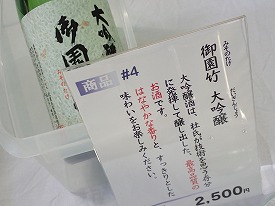 大吟醸
御園竹
商品 #4
みそのたけ
御園竹 大吟醸
だいぎんじょう
大吟醸酒は、杜氏が技術を思う存分
に発揮して醸し出した、最高品質の
お酒です。
はなやかな香りと、すっきりとした
味わいをお楽しみください。
2,500円